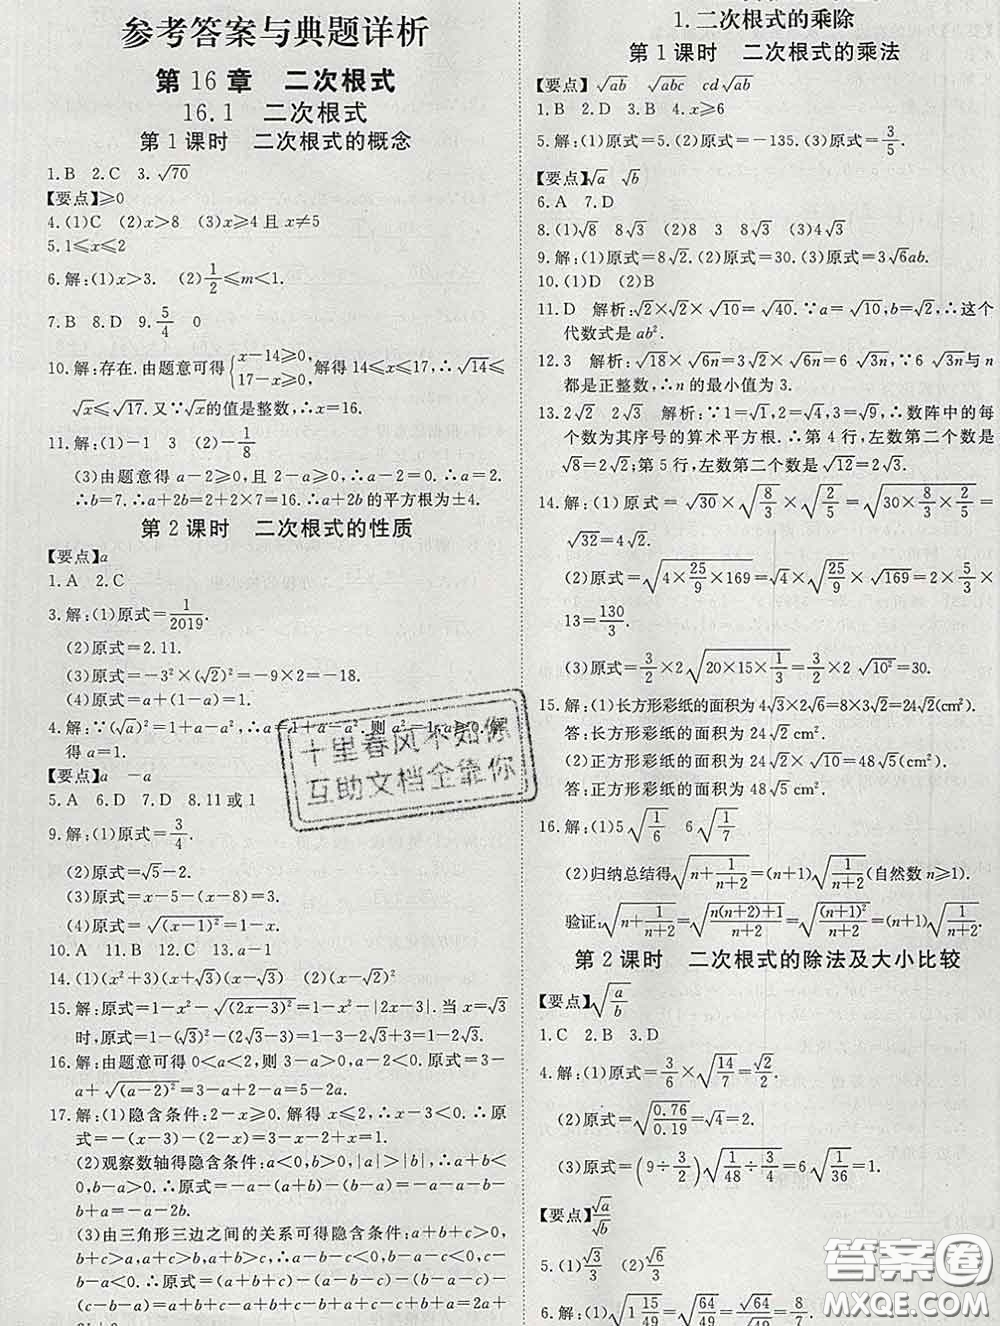 参考答案与典题详析
第16章 二次根式
16.1 二次根式
第1课时 二次根式的概念
1.B 2.C 3.√70
【要点】≥0
4.(1)C (2)x>8 (3)x≥4且x≠5
5.1≤x≤2
6.解:(1)x>3. (2)1/2≤m<1.
7.B 8.D 9.5/4 0
10.解:存在.由题意可得{x-14≥0, 17-x≥0,解得14≤x≤17.∴√14≤
√x≤√17.又∵√x的值是整数,∴x=16.
11.解:(1)-1 3 (2)-1/8
(3)由题意得a-2≥0,且2-a≥0,∴a-2=0.∴a=2.
∴b=7.∴a+2b=2+2×7=16.∴a+2b的平方根为±4.
第2课时 二次根式的性质
【要点】a
1.A 2.C
3.解:(1)原式=1/2019.
(2)原式=2.11.
(3)原式=-3²×(√2)²=-9×2=-18.
(4)原式=a+(1-a)=1.
4.解:∵(√a)²=1+a-a²,∴a=1+a-a².则a²=1,a≥0.解
得a=1.
【要点】a -a
5.A 6.D 7.D 8.11或1
9.解:(1)原式=3/4.
(2)原式=√5-2.
(3)原式=x-5-(x-8)=3.
(4)原式=√(x-1)²=1-x.
10.A 11.B 12.C 13.a-1
14.(1)(x²+3)(x+√3)(x-√3) (2)(x-√3)²
15.解:原式=1-x²-√(2x-3)²=1-x²-|2x-3|.当x=√3
时,原式=1-(√3)²-(2√3-3)=1-3-2√3+3=1-2√3.
16.解:由题意可得0<a<2,则3-a>0,a-2<0.原式=3-
a+√(a-2)²=3-a+2-a=5-2a.
17.解:(1)隐含条件:2-x≥0.解得x≤2,∴x-3<0.∴原
式=-(x-3)-(2-x)=3-x-2+x=1.
(2)观察数轴得隐含条件:a<0,b>0,|a|>|b|,∴a+b<
0,b-a>0.∴原式=-a-(a+b)-(b-a)=-a-a-b-b+
a=-a-2b.
(3)由三角形三边之间的关系可得隐含条件:a+b+c>0,
b+c>a,a+c>b,a+b>c,∴a-b-c<0,b-a-c<0,c-b-
a<0.∴原式=(a+b+c)-(a-b-c)-(b-a-c)-
(c-b-a)=a+b+c-a+b+c-b+a+c-c+b+a=2a+
1.二次根式的乘除
第1课时 二次根式的乘法
【要点】√ab √abc cd√abd
1.B 2.D 3.B 4.x≥6
5.解:(1)原式=5.(2)原式=-135.(3)原式=√3/5.
【要点】√a √b
6.A 7.D
8.(1)√8 8√3 (2)8 3 8√3 (3)4√3
9.解:(1)原式=8√2.(2)原式=30.(3)原式=3√6ab.
10.(1)D (2)B
11.D 解析:√2×√2×√10=√40.∵a=√10,b=√2,∴这个
代数式是ab².
12.3 解析:√18×√6n=3√2×√6n=6 √3n,∵6 √3n与n
都是正整数,∴n的最小值为3.
13.2√2 2√3 解析:∵1=√1,2=√4,3=√9,∴数阵中的每
个数为其序号的算术平方根.∴第4行,左数第二个数是
√8=2√2;第5行,左数第二个数是√12=2√3.
14.解:(1)原式=√30×√(8/3)×√(2/5)=√(30×8/3×2/5)=
√32=4√2.
(2)原式=√(4×25/9×169)=√4×√(25/9)×√169=2×5/3×
13=130/3.
(3)原式=3/2×2√(20×15×1/3)=3/2×2√10²=30.
15.解:(1)长方形彩纸的面积为4√3×2√6=8×3√2=24√2(cm²).
答:长方形彩纸的面积为24√2 cm².
(2)正方形彩纸的面积为24√2×√10=48√5(cm²).
答:正方形彩纸的面积为48√5 cm².
16.解:(1)5√(1/6) 6√(1/7)
(2)归纳总结得√(n+1/(n+2))=(n+1)√(1/(n+2))(自然数n≥1).
验证:√(n+1/(n+2))=√((n(n+2)+1)/(n+2))=√((n+1)²/(n+2))=(n+1)√(1/(n+2)).
第2课时 二次根式的除法及大小比较
【要点】√(a/b)
1.C 2.B 3.D
4.解:(1)原式=3/6×√(14/7)=√2/2.
(2)原式=√(0.76/0.19)=√4=2.
(3)原式=(9÷3/2)√(1/48÷3/4)=6√(1/36)=1.
【要点】√a/√b
5.(1)√3/3 (2)√6/3
6.解:(1)√(1 15/49)=√(64/49)=√64/√49=8/7.
十里春风不如你
互助文档全靠你
答案圈
MXQE.COM